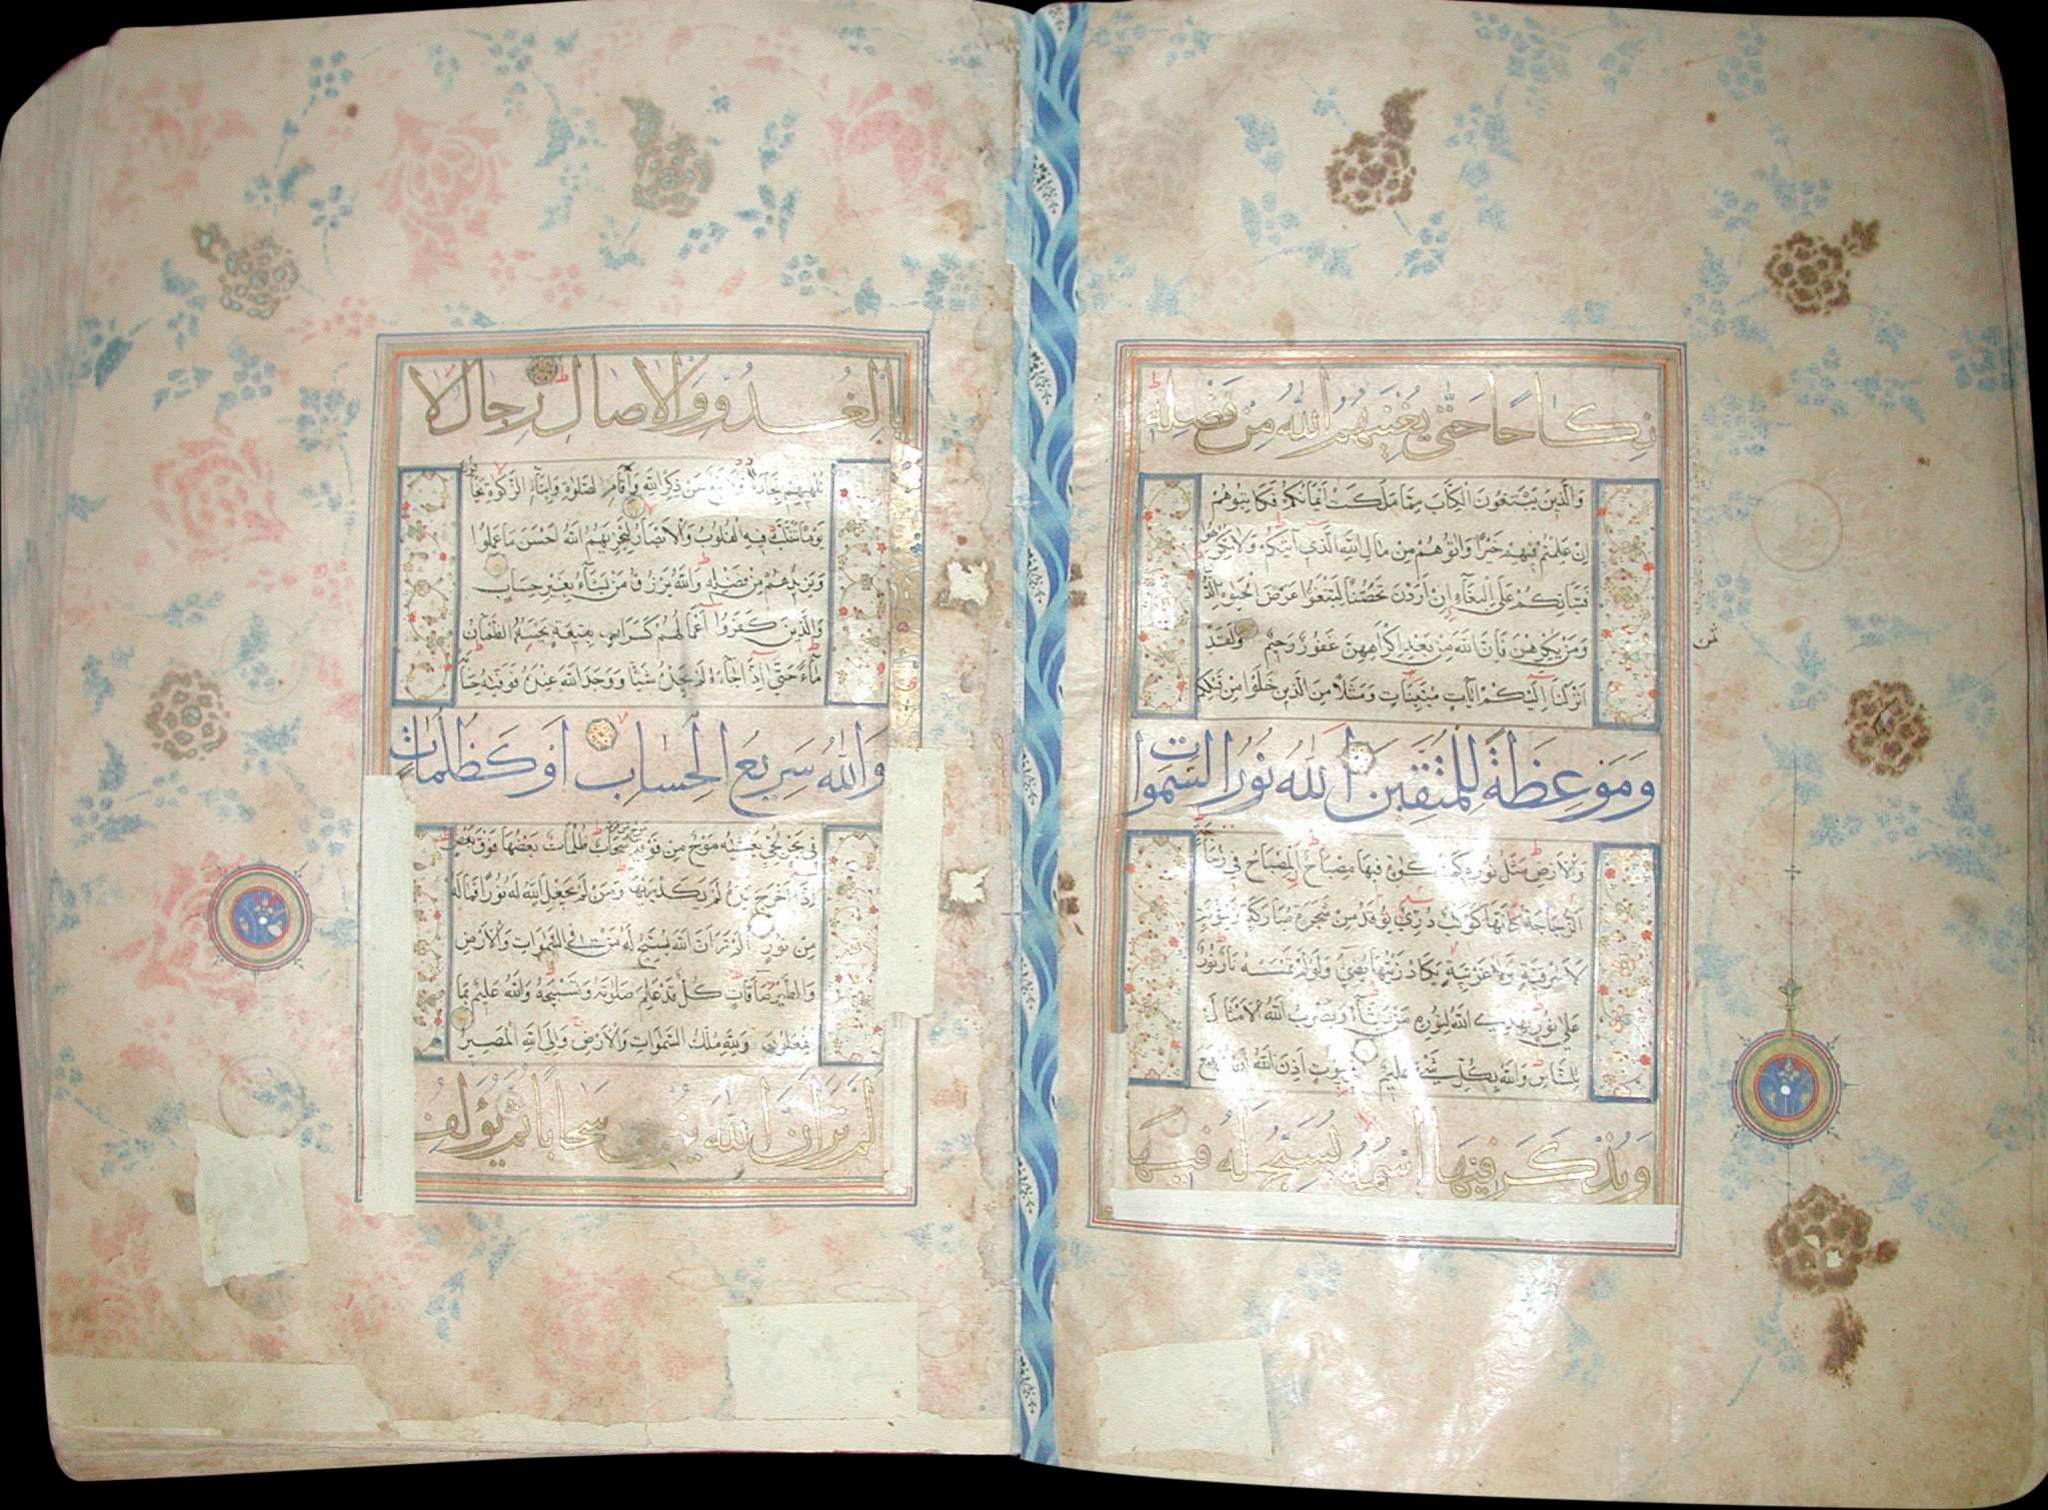 نِكَاحًا حَتّٰى يُغْنِيَهُمُ اللّٰهُ مِنْ فَضْلِهٖ
وَالَّذِينَ يَبْتَغُونَ الْكِتَابَ مِمَّا مَلَكَتْ اَيْمَانُكُمْ فَكَاتِبُوهُمْ
اِنْ عَلِمْتُمْ فِيهِمْ خَيْرًا وَاٰتُوهُمْ مِنْ مَالِ اللّٰهِ الَّذِي اٰتٰيكُمْ وَلَا تُكْرِهُوا
فَتَيَاتِكُمْ عَلَى الْبِغَٓاءِ اِنْ اَرَدْنَ تَحَصُّنًا لِتَبْتَغُوا عَرَضَ الْحَيٰوةِ الدُّنْيَا
وَمَنْ يُكْرِهْهُنَّ فَاِنَّ اللّٰهَ مِنْ بَعْدِ اِكْرَاهِهِنَّ غَفُورٌ رَحِيمٌ وَلَقَدْ
اَنْزَلْنَا اِلَيْكُمْ اٰيَاتٍ مُبَيِّنَاتٍ وَمَثَلًا مِنَ الَّذِينَ خَلَوْا مِنْ قَبْلِكُمْ
وَمَوْعِظَةً لِلْمُتَّقِينَ اَللّٰهُ نُورُ السَّمٰوَاتِ
وَالْاَرْضِ مَثَلُ نُورِهِ كَمِشْكٰوةٍ فِيهَا مِصْبَاحٌ الْمِصْبَاحُ فِي زُجَاجَةٍ
اَلزُّجَاجَةُ كَاَنَّهَا كَوْكَبٌ دُرِّيٌّ يُوقَدُ مِنْ شَجَرَةٍ مُبَارَكَةٍ زَيْتُونَةٍ
لَا شَرْقِيَّةٍ وَلَا غَرْبِيَّةٍ يَكَادُ زَيْتُهَا يُضِيءُ وَلَوْ لَمْ تَمْسَسْهُ نَارٌ نُورٌ
عَلٰى نُورٍ يَهْدِي اللّٰهُ لِنُورِهِ مَنْ يَشَٓاءُ وَيَضْرِبُ اللّٰهُ الْاَمْثَالَ
لِلنَّاسِ وَاللّٰهُ بِكُلِّ شَيْءٍ عَلِيمٌ فِي بُيُوتٍ اَذِنَ اللّٰهُ اَنْ تُرْفَعَ
وَيُذْكَرَ فِيهَا اسْمُهُ يُسَبِّحُ لَهُ فِيهَا
ثمن
بِالْغُدُوِّ وَالْاٰصَالِ رِجَالٌ لَا
تُلْهِيهِمْ تِجَارَةٌ وَلَا بَيْعٌ عَنْ ذِكْرِ اللّٰهِ وَاِقَامِ الصَّلٰوةِ وَاِيتَٓاءِ الزَّكٰوةِ يَخَافُونَ
يَوْمًا تَتَقَلَّبُ فِيهِ الْقُلُوبُ وَالْاَبْصَارُ لِيَجْزِيَهُمُ اللّٰهُ اَحْسَنَ مَا عَمِلُوا
وَيَزِيدَهُمْ مِنْ فَضْلِهِ وَاللّٰهُ يَرْزُقُ مَنْ يَشَٓاءُ بِغَيْرِ حِسَابٍ
وَالَّذِينَ كَفَرُوا اَعْمَالُهُمْ كَسَرَابٍ بِقِيعَةٍ يَحْسَبُهُ الظَّمْاٰنُ
مَٓاءً حَتّٰى اِذَا جَٓاءَهُ لَمْ يَجِدْهُ شَيْئًا وَوَجَدَ اللّٰهَ عِنْدَهُ فَوَفّٰيهُ حِسَابَهُ
وَاللّٰهُ سَرِيعُ الْحِسَابِ اَوْ كَظُلُمَاتٍ
فِي بَحْرٍ لُجِّيٍّ يَغْشٰيهُ مَوْجٌ مِنْ فَوْقِهِ مَوْجٌ مِنْ فَوْقِهِ سَحَابٌ ظُلُمَاتٌ بَعْضُهَا فَوْقَ بَعْضٍ
اِذَا اَخْرَجَ يَدَهُ لَمْ يَكَدْ يَرٰيهَا وَمَنْ لَمْ يَجْعَلِ اللّٰهُ لَهُ نُورًا فَمَا لَهُ
مِنْ نُورٍ اَلَمْ تَرَ اَنَّ اللّٰهَ يُسَبِّحُ لَهُ مَنْ فِي السَّمٰوَاتِ وَالْاَرْضِ
وَالطَّيْرُ صَٓافَّاتٍ كُلٌّ قَدْ عَلِمَ صَلَاتَهُ وَتَسْبِيحَهُ وَاللّٰهُ عَلِيمٌ بِمَا
يَفْعَلُونَ وَلِلّٰهِ مُلْكُ السَّمٰوَاتِ وَالْاَرْضِ وَاِلَى اللّٰهِ الْمَصِيرُ
اَلَمْ تَرَ اَنَّ اللّٰهَ يُزْجِي سَحَابًا ثُمَّ يُؤَلِّفُ